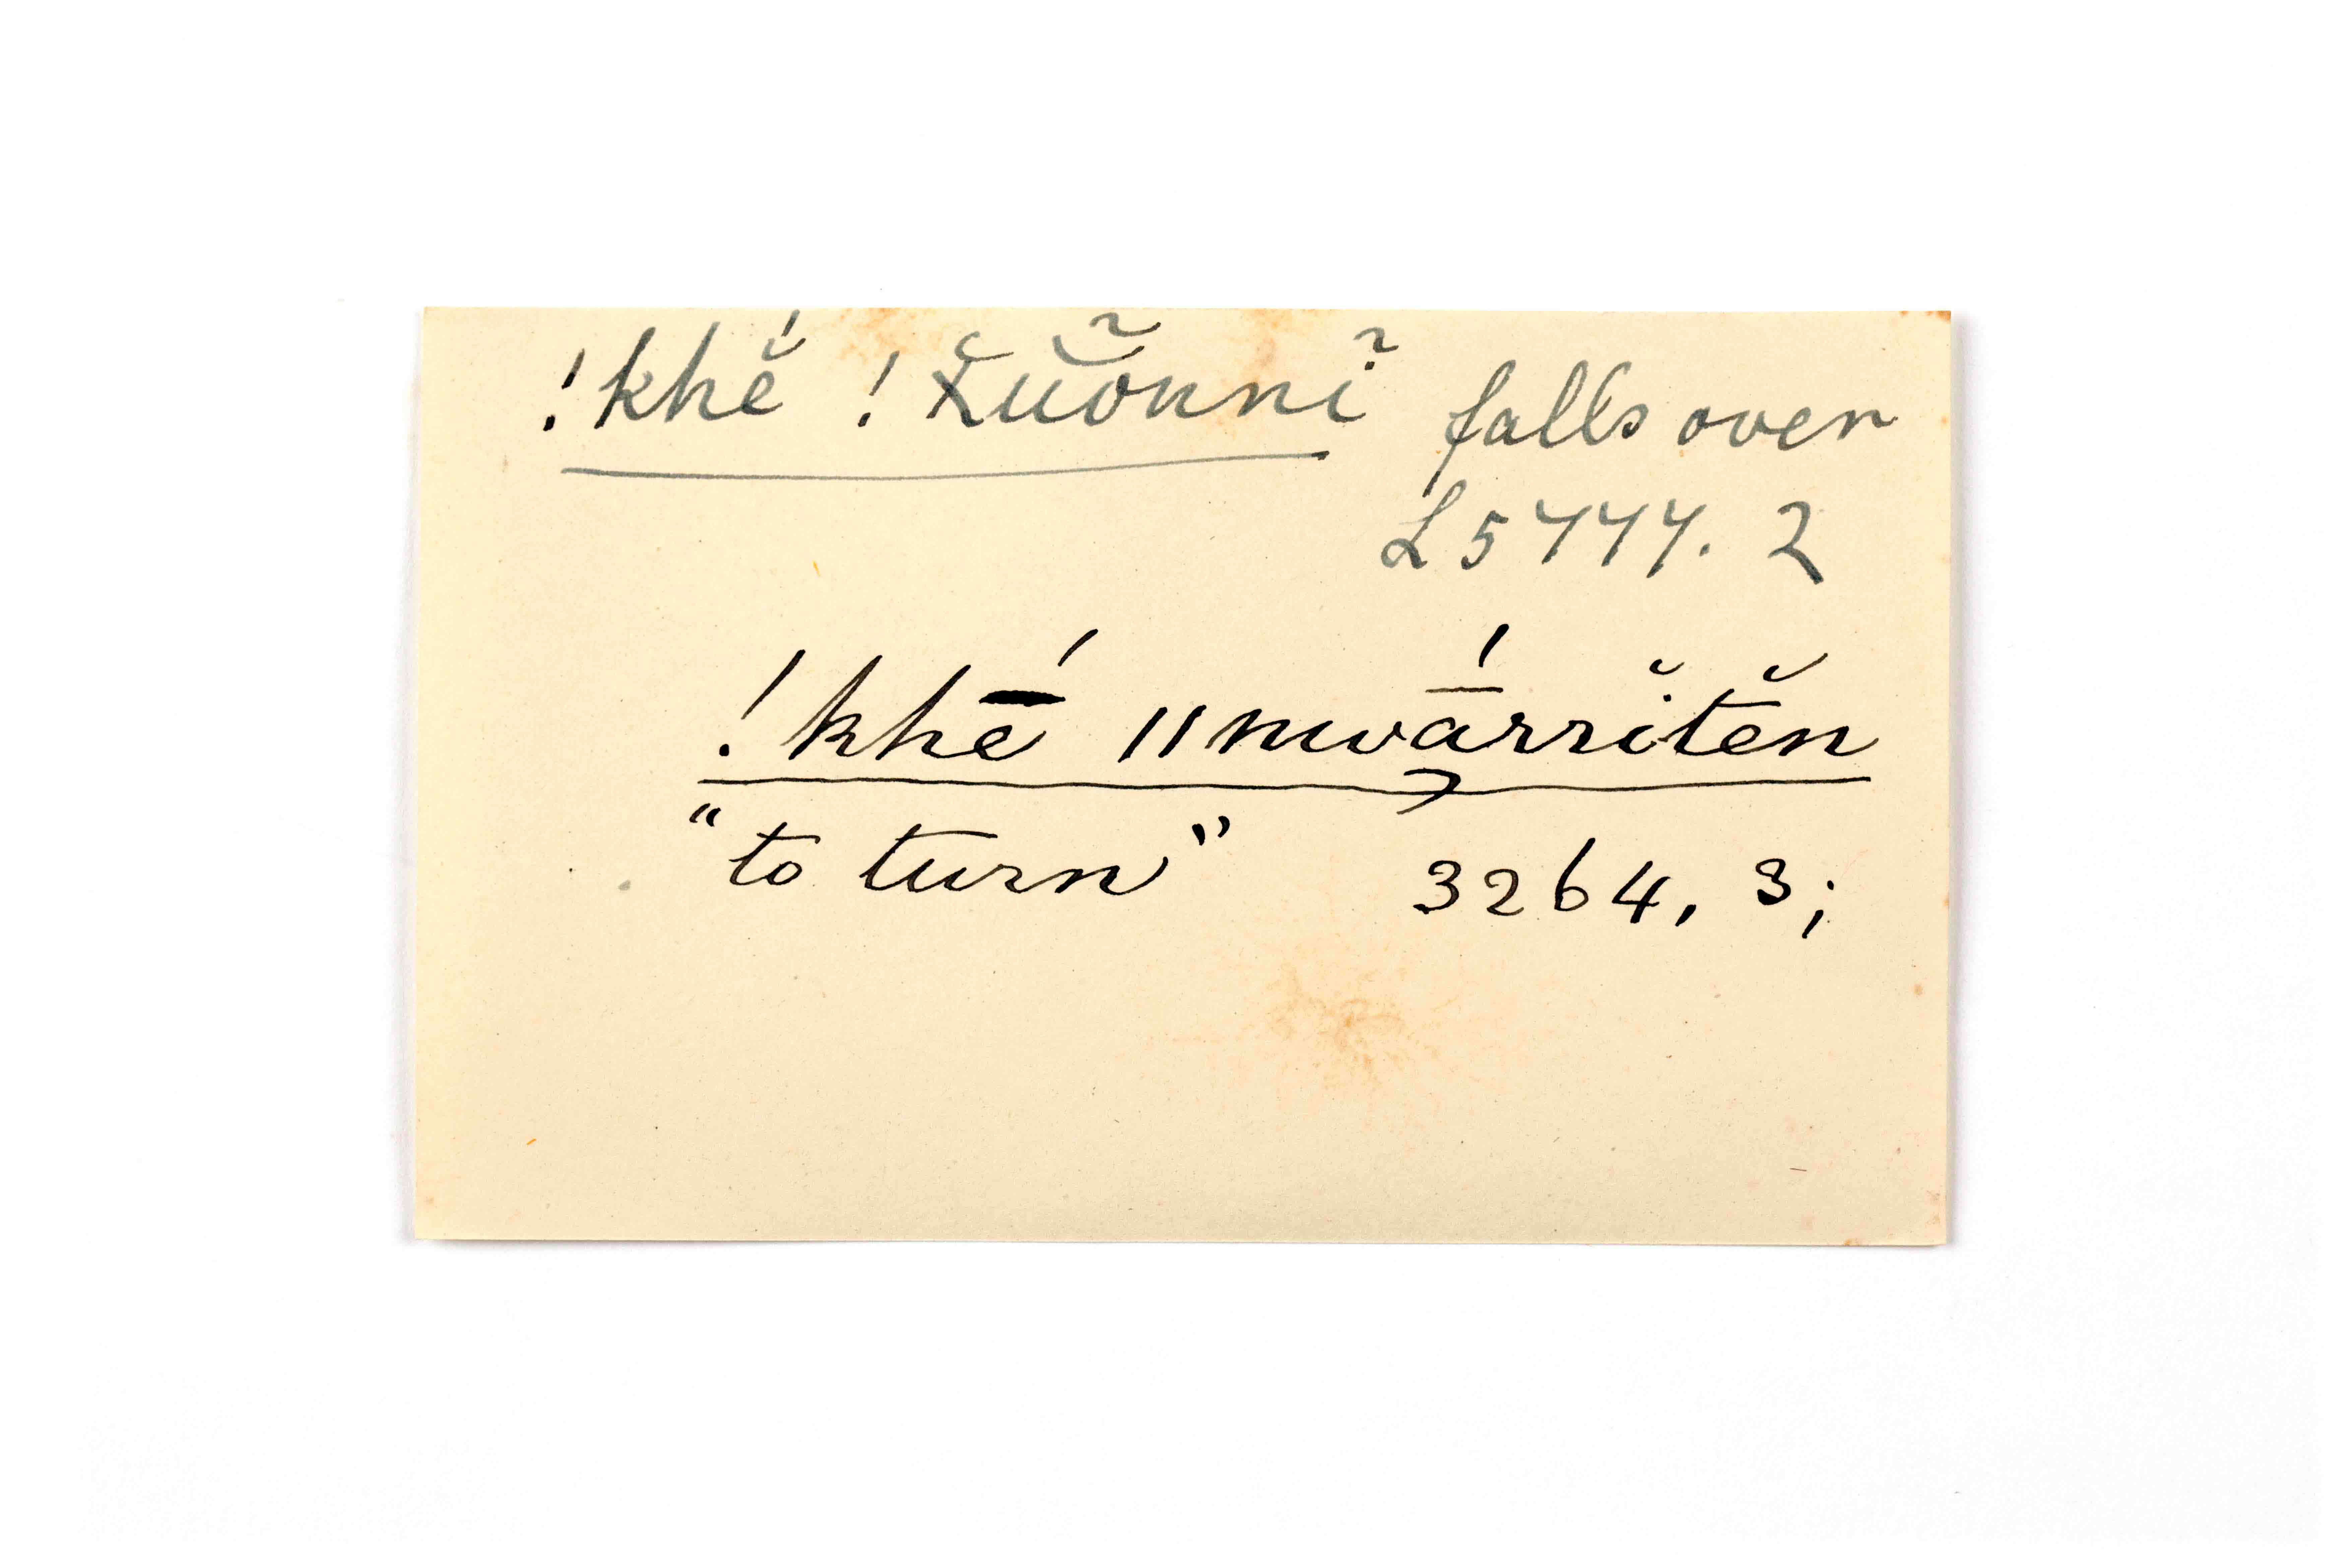 !khĕ́ !k̆ŭõnnĩ falls over
L5444. 2
!khḗ ǁnwā́rrĭtĕn
"to turn" 3264, 3;